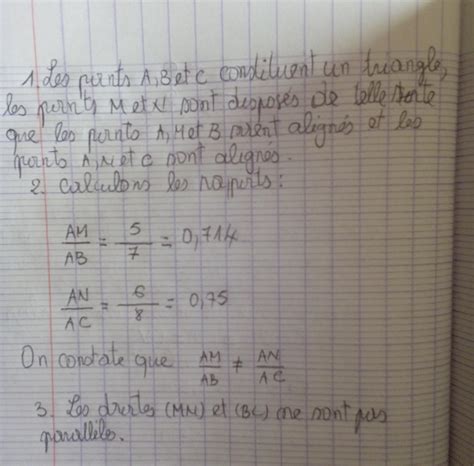 1. Les points A, B et C constituent un triangle,
les points M et N sont disposés de telle sorte
que les points A, M et B soient alignés et les
points A, N et C sont alignés.
2. Calculons les rapports :
AM/AB = 5/7 = 0,714
AN/AC = 6/8 = 0,75
On constate que AM/AB ≠ AN/AC
3. Les droites (MN) et (BC) ne sont pas
parallèles.